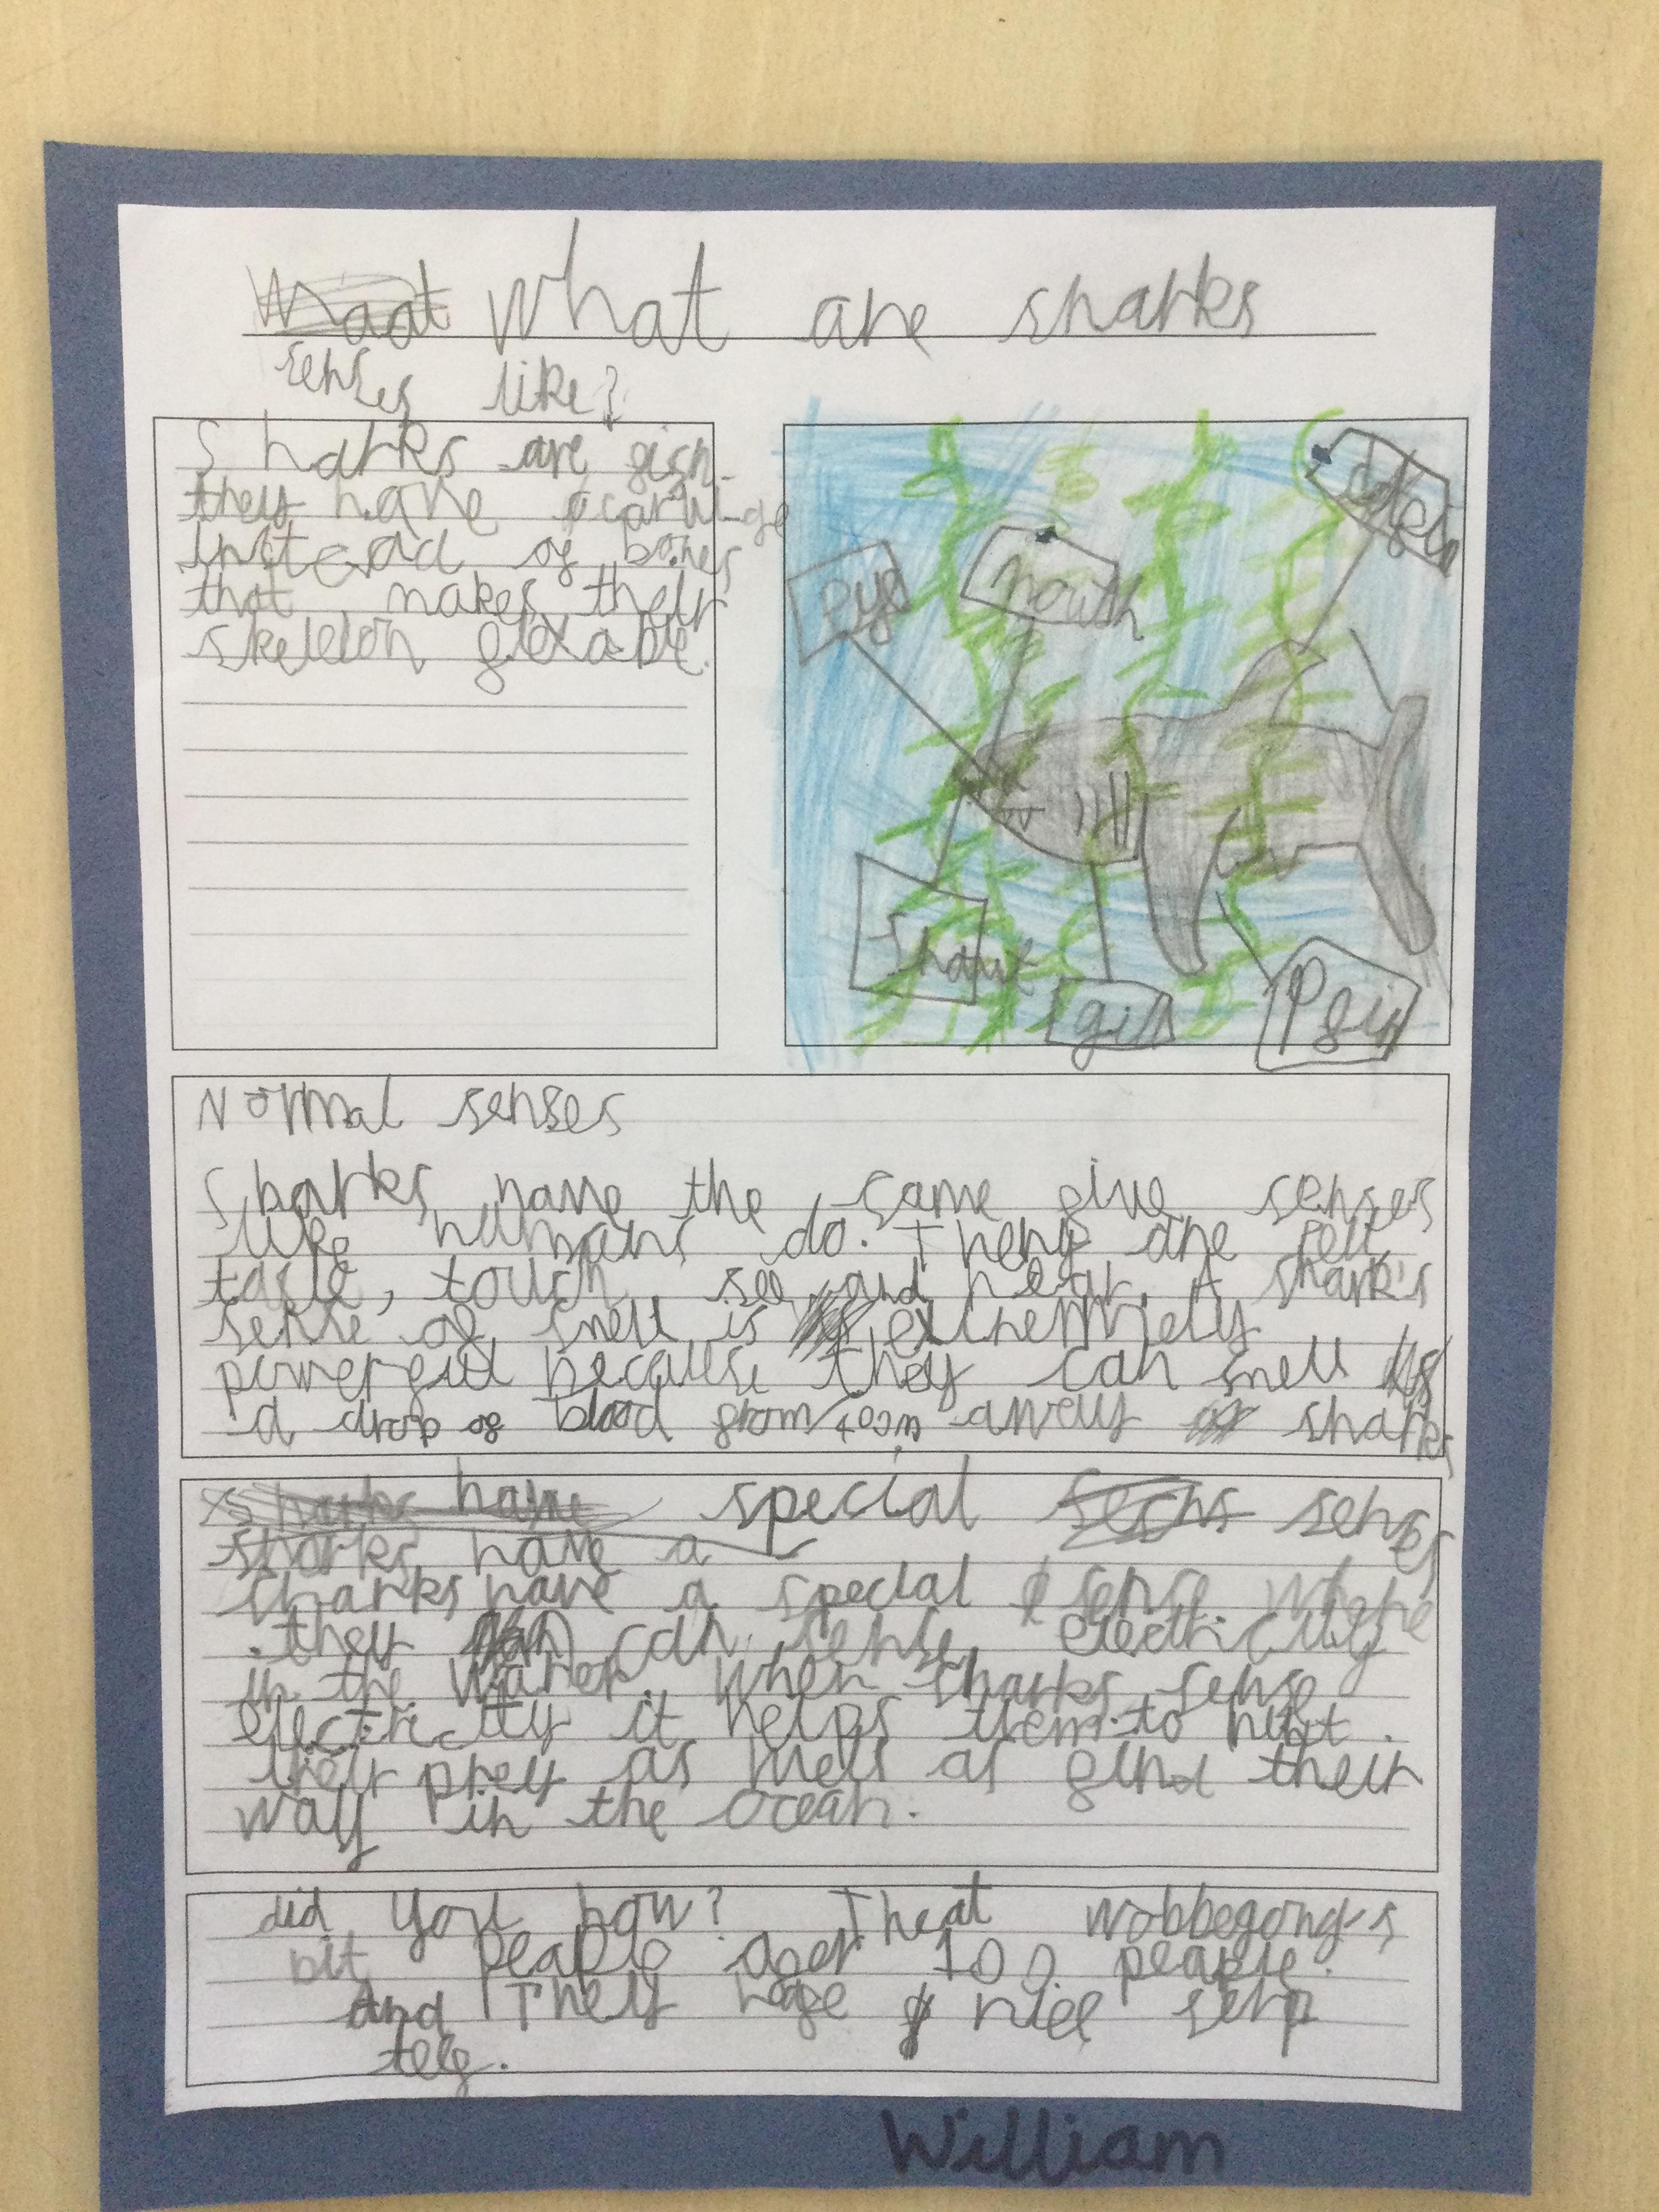 What are sharks
senses like?
Sharks are fish
they have a cartilage
instead of bones
that makes their
skeleton flexable.
eye
mouth
dofin
Shark
gills
P fin
Normal senses
Sharks have the same five senses
like humans do. They are
taste, touch, see and hear. A shark's
sense of smell is extremely
powerful because they can smell
a drop of blood from 400m away sharks
special senses
sharks have a
sharks have a special sense where
they can sense electricity
in the water. When sharks sense
electricity it helps them to hunt
their prey as well as find their
way in the ocean.
did you know? Theat wobbegong's
bit peaple after 100 peaple.
And They have
teeg.
William